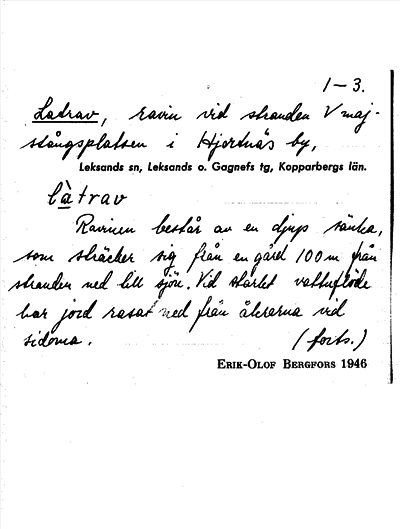 1-3.
Ladrav, ravin vid stranden V maj-
stångsplatsen i Hjortnäs by,
Leksands sn, Leksands o. Gagnefs tg, Kopparbergs län.
làtrav
Ravinen består av en djup sänka,
som sträcker sig från en gård 100 m från
stranden ned till sjön. Vid starkt vattuflöde
har jord rasat ned från åkrarna vid
sidorna. (forts.)
ERIK-OLOF BERGFORS 1946